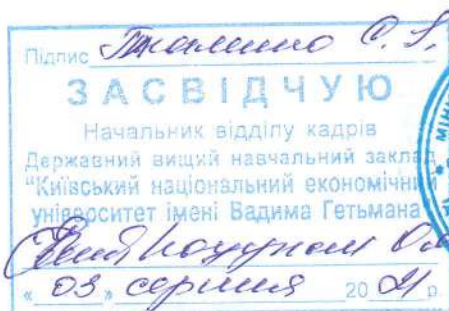 Підпис
ЗАСВІДЧУЮ
Начальник відділу кадрів
Державний вищий навчальний заклад
"Київський національний економічний
університет імені Вадима Гетьмана
« 03 » серпня 2021 р.